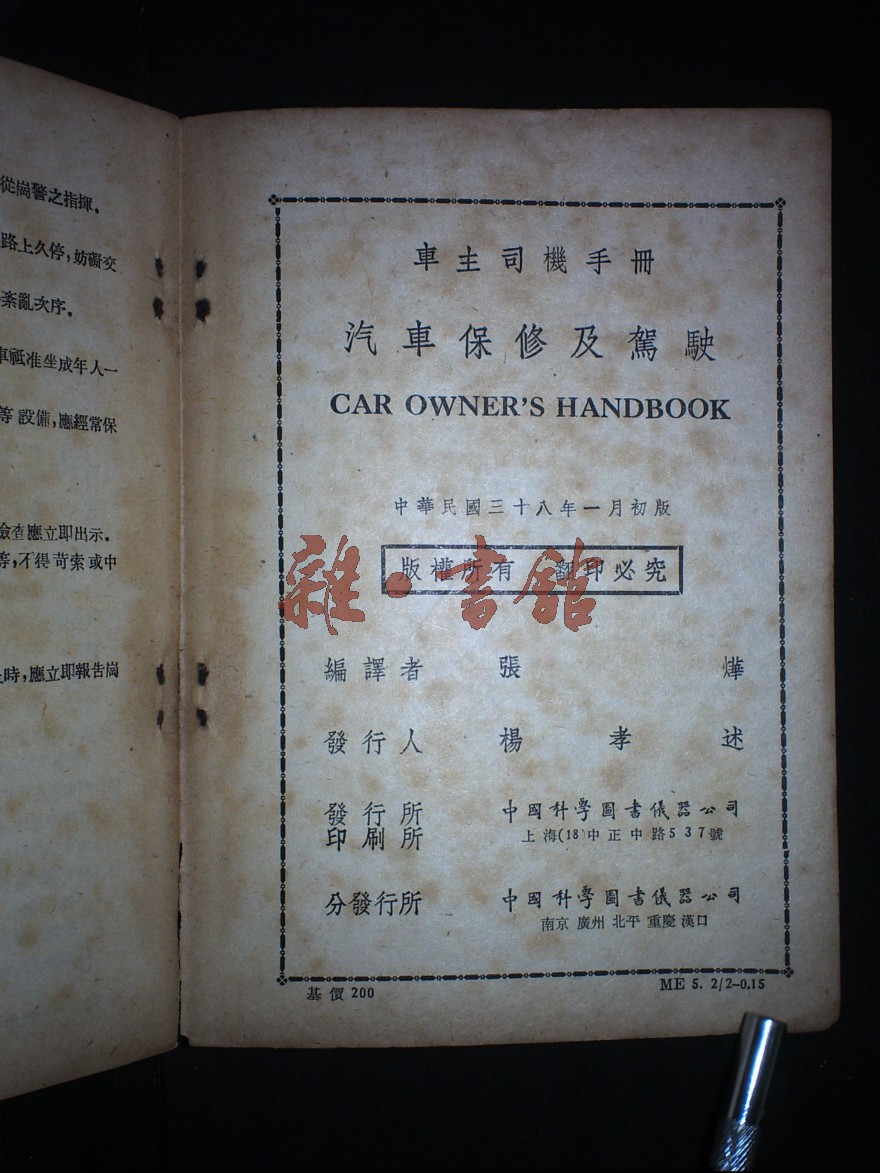 從崗警之指揮。
路上久停,妨礙交
紊亂次序。
車祗准坐成年人一
等設備,應經常保
檢查應立即出示。
等,不得苛索或中
時,應立即報告崗
車主司機手冊
汽車保修及駕駛
CAR OWNER'S HANDBOOK
中華民國三十八年一月初版
版權所有 翻印必究
雜·書館
編譯者 張燁
發行人 楊孝述
發行所 中國科學圖書儀器公司
印刷所 上海(18)中正中路537號
分發行所 中國科學圖書儀器公司
南京 廣州 北平 重慶 漢口
基價 200
ME 5. 2/2-0.15